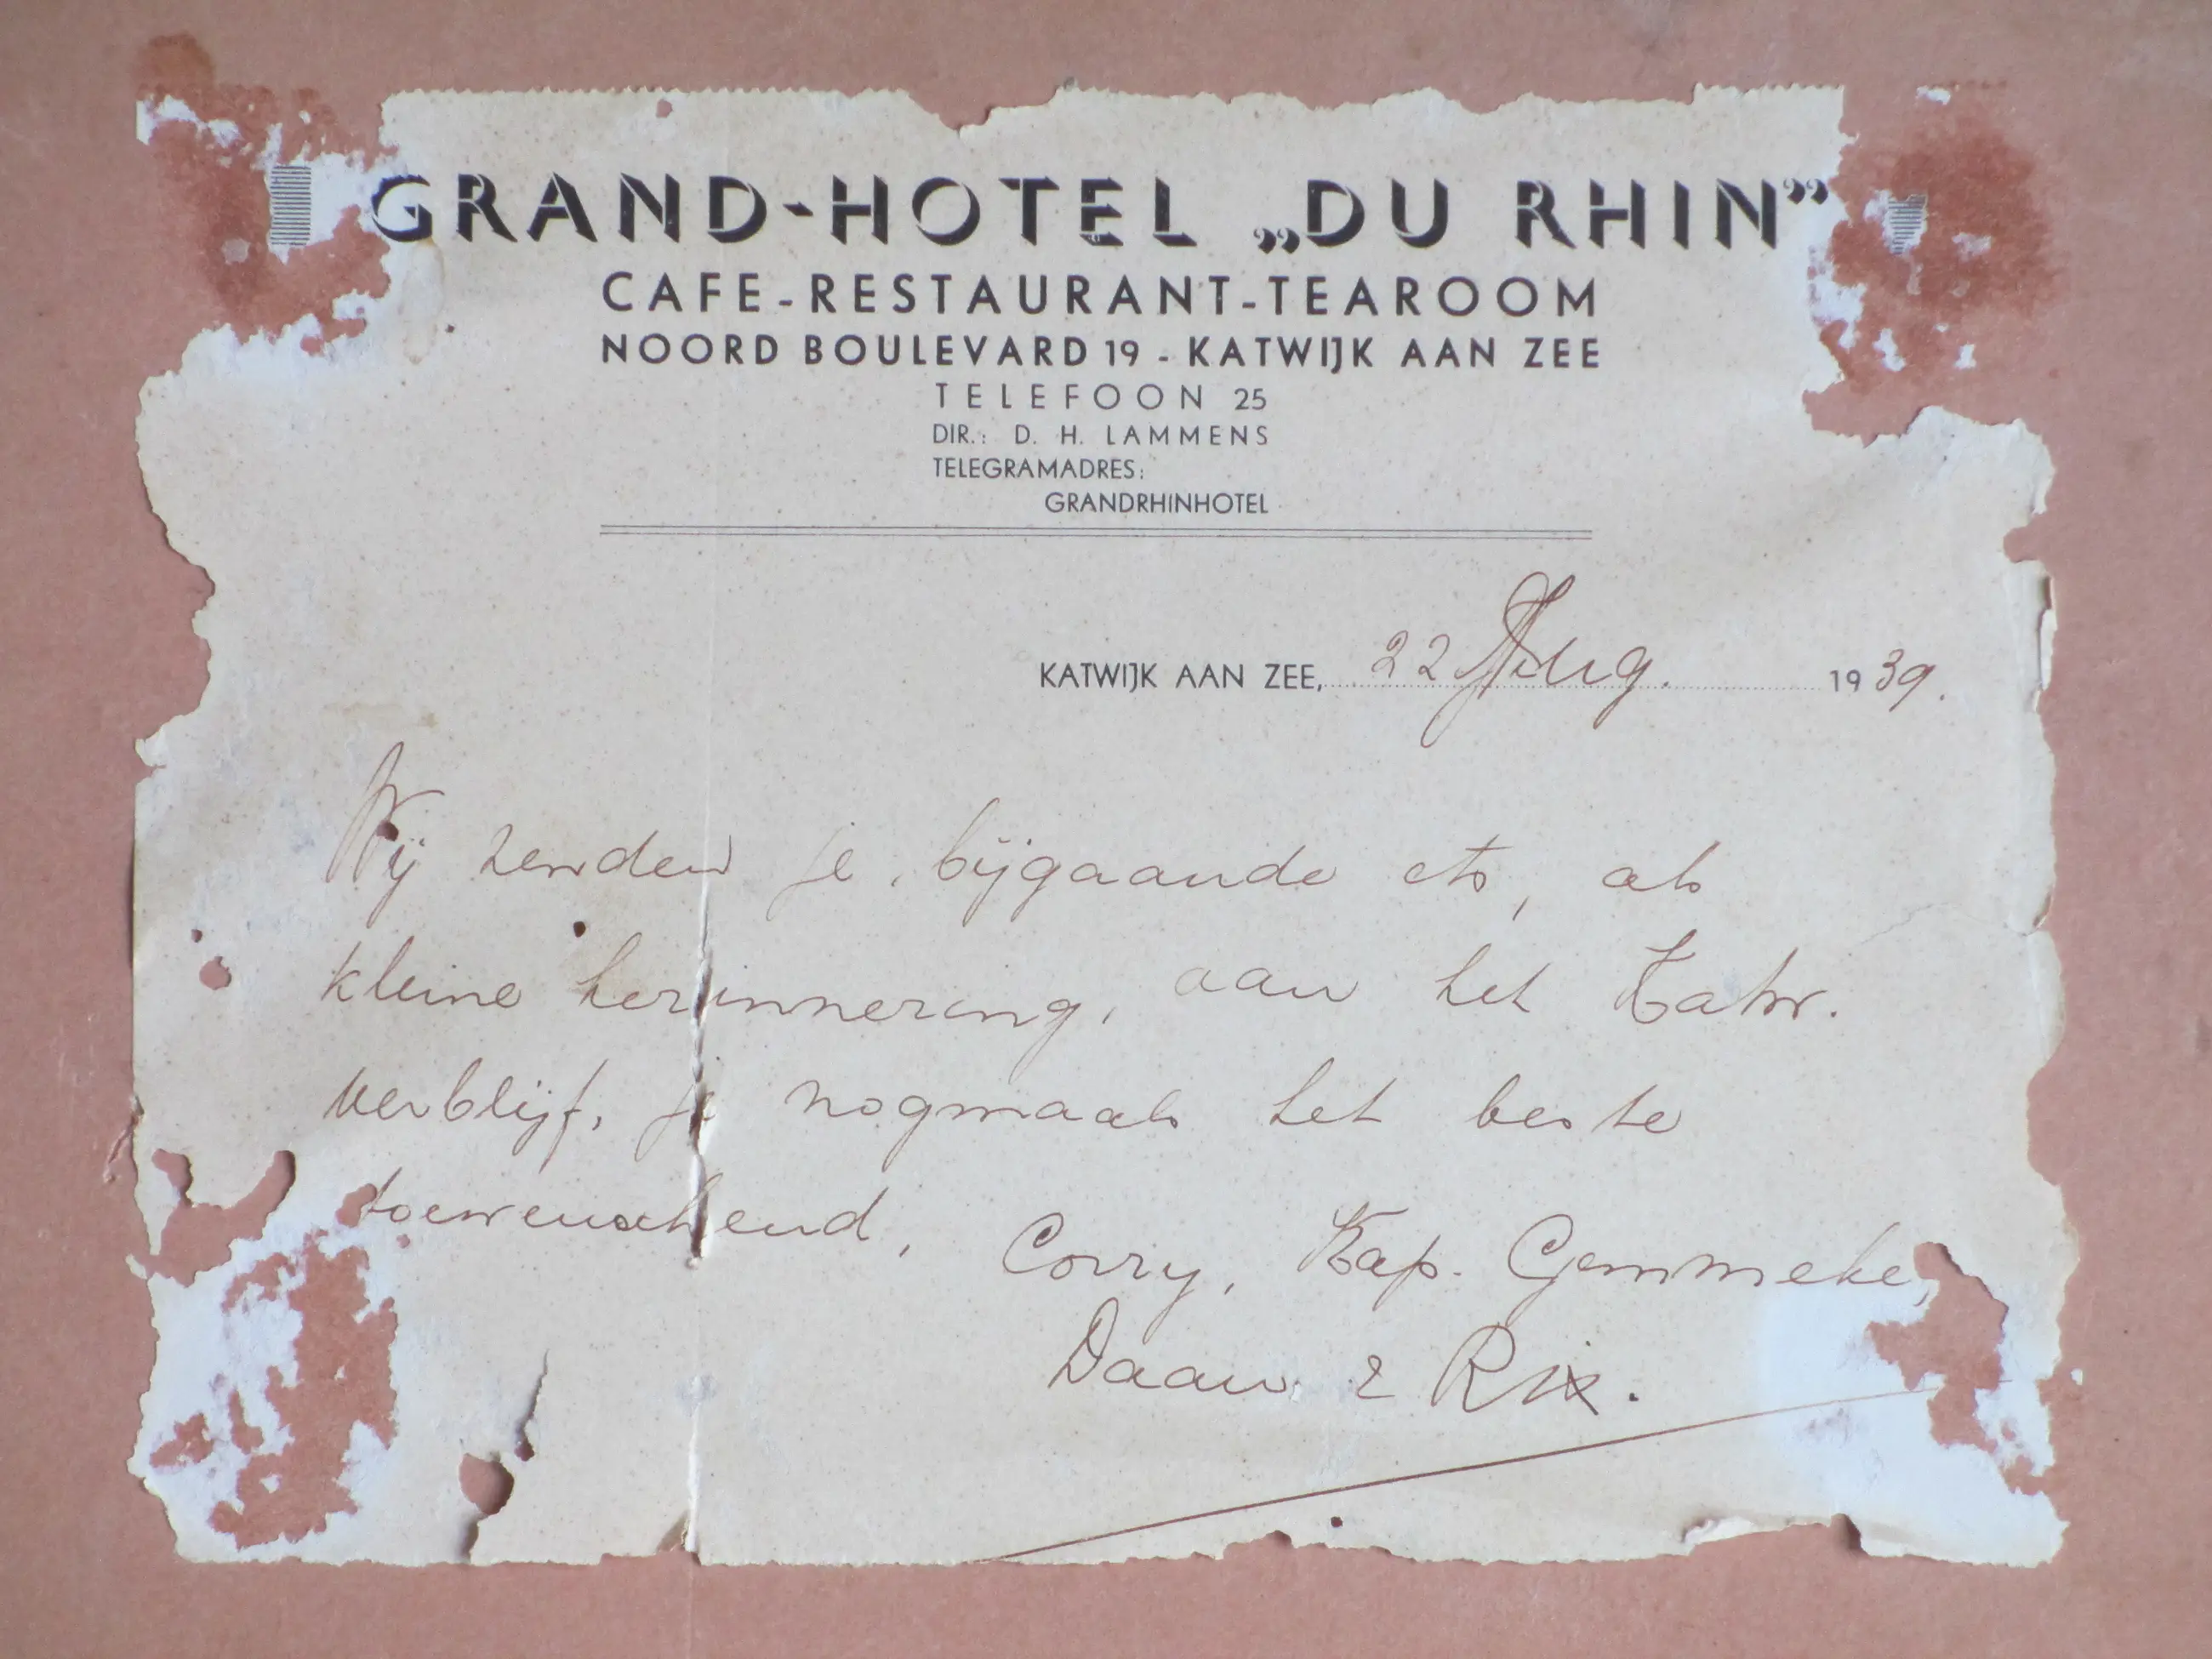 GRAND-HOTEL „DU RHIN”
CAFE-RESTAURANT-TEAROOM
NOORD BOULEVARD 19 - KATWIJK AAN ZEE
TELEFOON 25
DIR.: D. H. LAMMENS
TELEGRAMADRES:
GRANDRHINHOTEL
KATWIJK AAN ZEE, 22 Aug. 1939.
Wij zenden je, bijgaande ets, als
kleine herinnering, aan het Katw.
verblijf, je nogmaals het beste
toewenschend,
Corry, Kap. Gemmeke,
Daan & Rix.